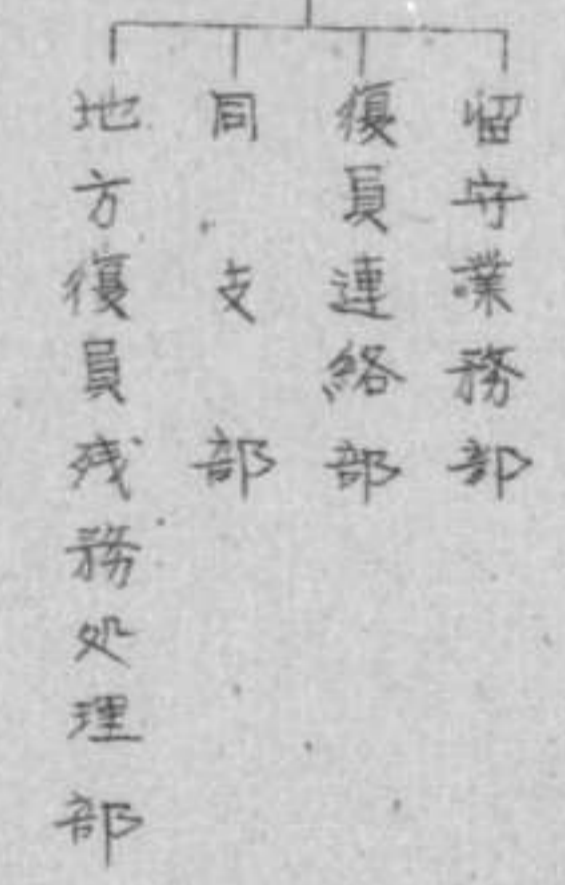 留守業務部
復員連絡部
同支部
地方復員残務処理部